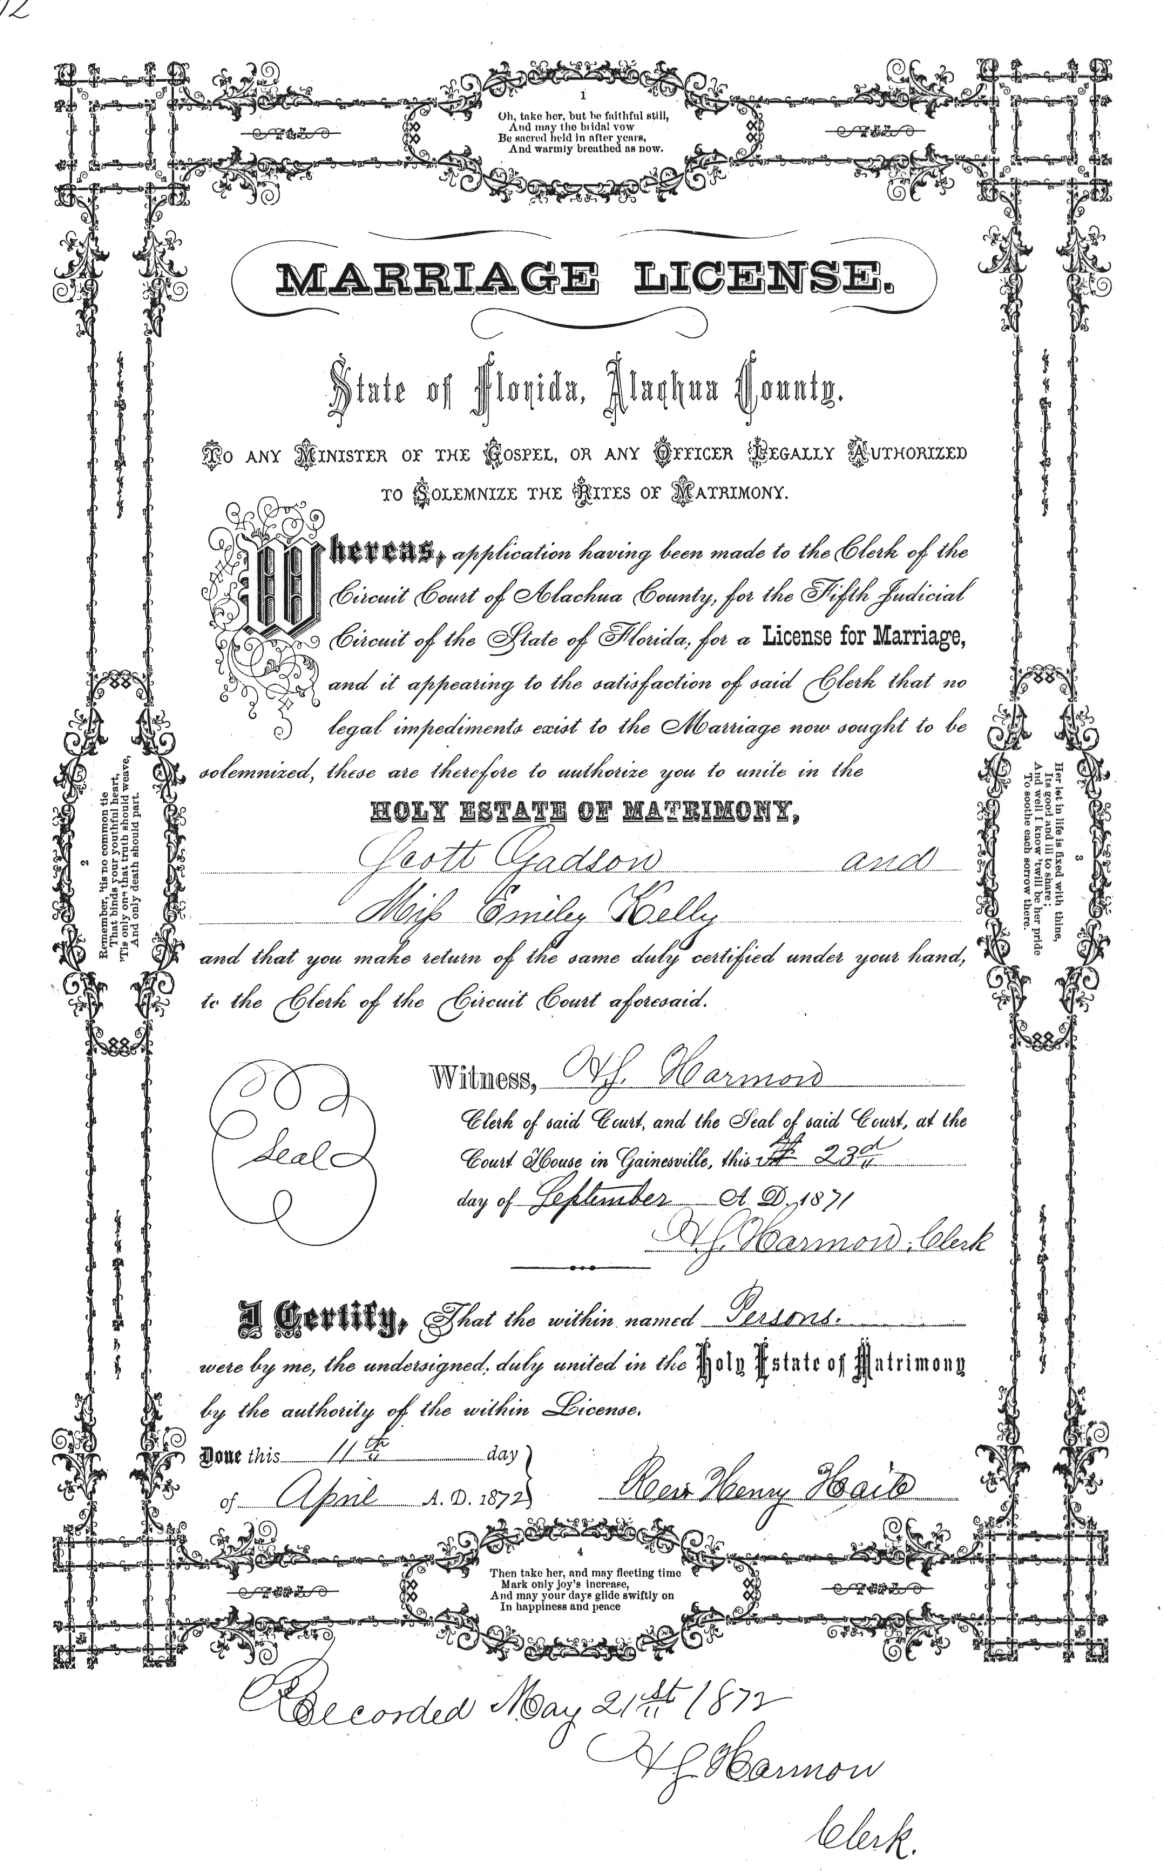 1
Oh, take her, but be faithful still,
And may the bridal vow
Be sacred held in after years,
And warmly breathed as now.
MARRIAGE LICENSE.
State of Florida, Alachua County.
TO ANY MINISTER OF THE GOSPEL, OR ANY OFFICER LEGALLY AUTHORIZED
TO SOLEMNIZE THE RITES OF MATRIMONY.
Whereas, application having been made to the Clerk of the
Circuit Court of Alachua County, for the Fifth Judicial
Circuit of the State of Florida, for a License for Marriage,
and it appearing to the satisfaction of said Clerk that no
legal impediments exist to the Marriage now sought to be
solemnized, these are therefore to authorize you to unite in the
HOLY ESTATE OF MATRIMONY,
Scott Gadson and
Miss Emiley Kelly
and that you make return of the same duly certified under your hand,
to the Clerk of the Circuit Court aforesaid.
2
Remember, 'tis no common tie
That binds your youthful heart,
'Tis only one that truth should weave,
And only death should part.
3
Her lot in life is fixed with thine,
Its good and ill to share;
And well I know 'twill be her pride
To soothe each sorrow there.
Seal
Witness, H.J. Harmon
Clerk of said Court, and the Seal of said Court, at the
Court House in Gainesville, this 23d
day of September A. D. 1871
H.J. Harmon, Clerk
I Certify, That the within named Persons.
were by me, the undersigned, duly united in the Holy Estate of Matrimony
by the authority of the within License.
Done this 11th day
of April A. D. 1872
Rev Henry Haile
4
Then take her, and may fleeting time
Mark only joy's increase,
And may your days glide swiftly on
In happiness and peace
Recorded May 21st 1872
H J Harmon
Clerk.